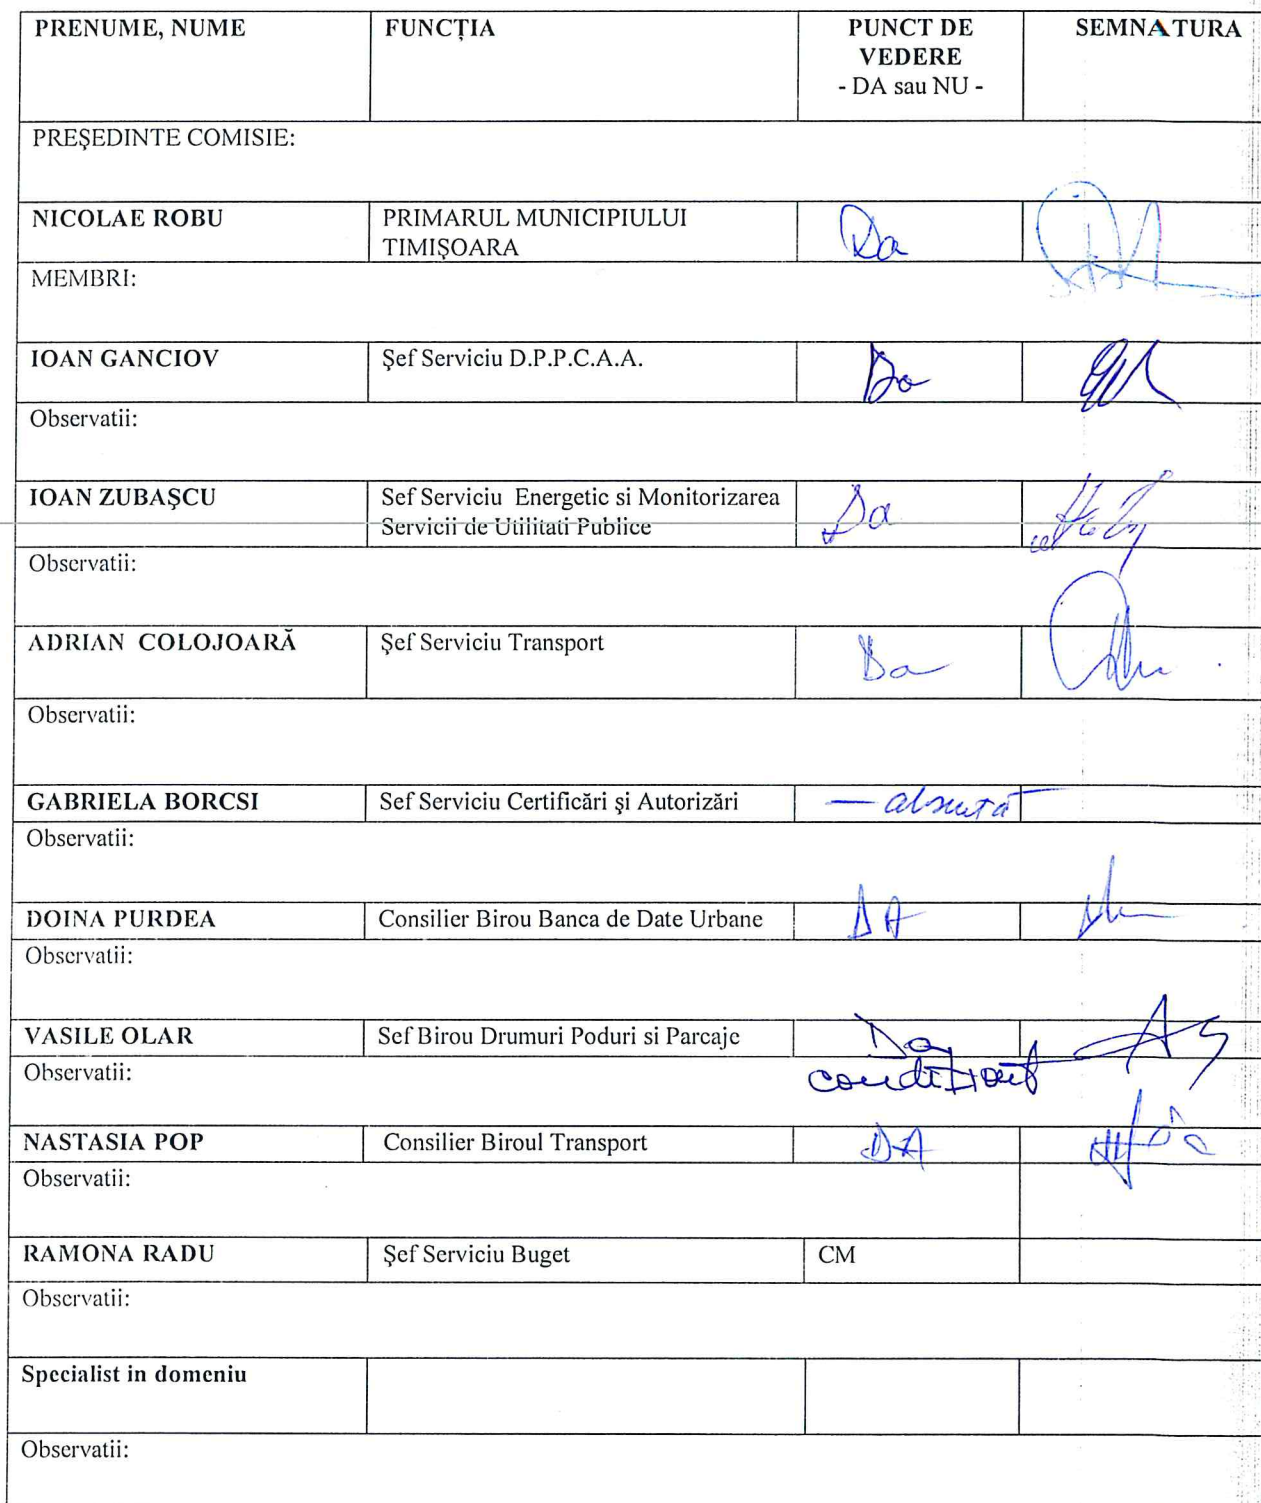 PRENUME, NUME FUNCȚIA PUNCT DE VEDERE - DA sau NU - SEMNATURA
PREŞEDINTE COMISIE:
NICOLAE ROBU PRIMARUL MUNICIPIULUI TIMIŞOARA Da
MEMBRI:
IOAN GANCIOV Şef Serviciu D.P.P.C.A.A. Da
Observatii:
IOAN ZUBAŞCU Sef Serviciu Energetic si Monitorizarea Servicii de Utilitati Publice Da
Observatii:
ADRIAN COLOJOARĂ Şef Serviciu Transport Da
Observatii:
GABRIELA BORCSI Sef Serviciu Certificări şi Autorizări — absentă
Observatii:
DOINA PURDEA Consilier Birou Banca de Date Urbane DA
Observatii:
VASILE OLAR Sef Birou Drumuri Poduri si Parcaje Da
Observatii: condiționat
NASTASIA POP Consilier Biroul Transport DA
Observatii:
RAMONA RADU Şef Serviciu Buget CM
Observatii:
Specialist in domeniu
Observatii: